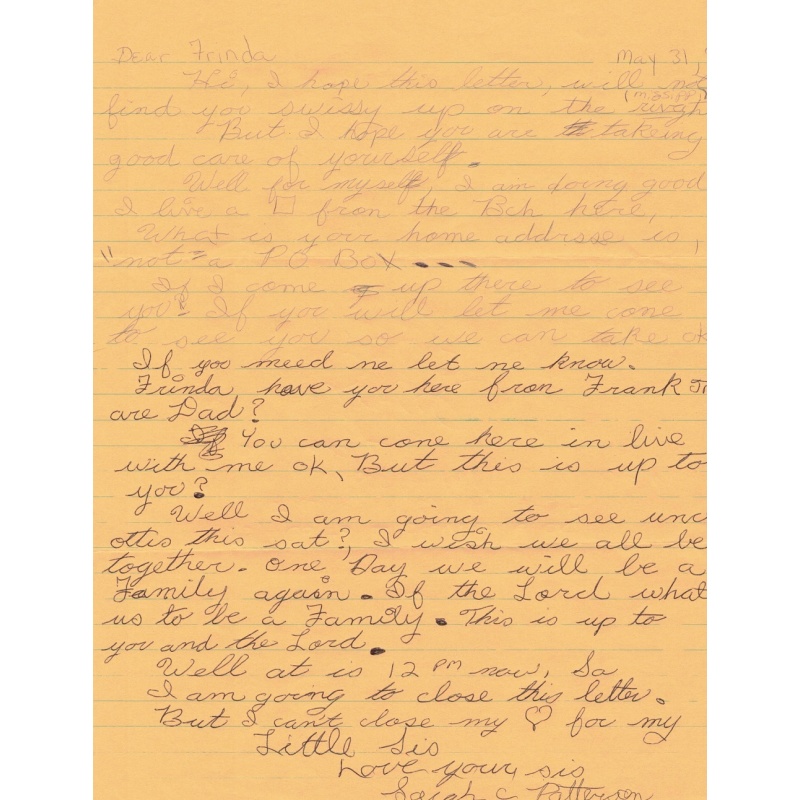 Dear Frinda May 31,
Hi, I hope this letter, will not
find you swissy up on the
But I hope you are takeing
good care of yourself.
Well for myself, I am doing good
I live a □ from the Bch here,
What is your home addrsse is,
"not" a PO Box...
If I come up there to see
you? If you will let me cone
to see you so we can take ok
If you meed ne let ne know.
Frinda have you here fron Frank Jr
are Dad?
You can cone here in live
with me ok, But this is up to
you?
Well I am going to see unc
ottis this sat?, I wish we all be
together. One Day we will be a
Family again. If the Lord what
us to be a Family. This is up to
you and the Lord.
Well at is 12 PM now, So
I am going to close this letter.
But I can't close my ♡ for my
Little Sis
Love your, sis
Sarah C Patterson